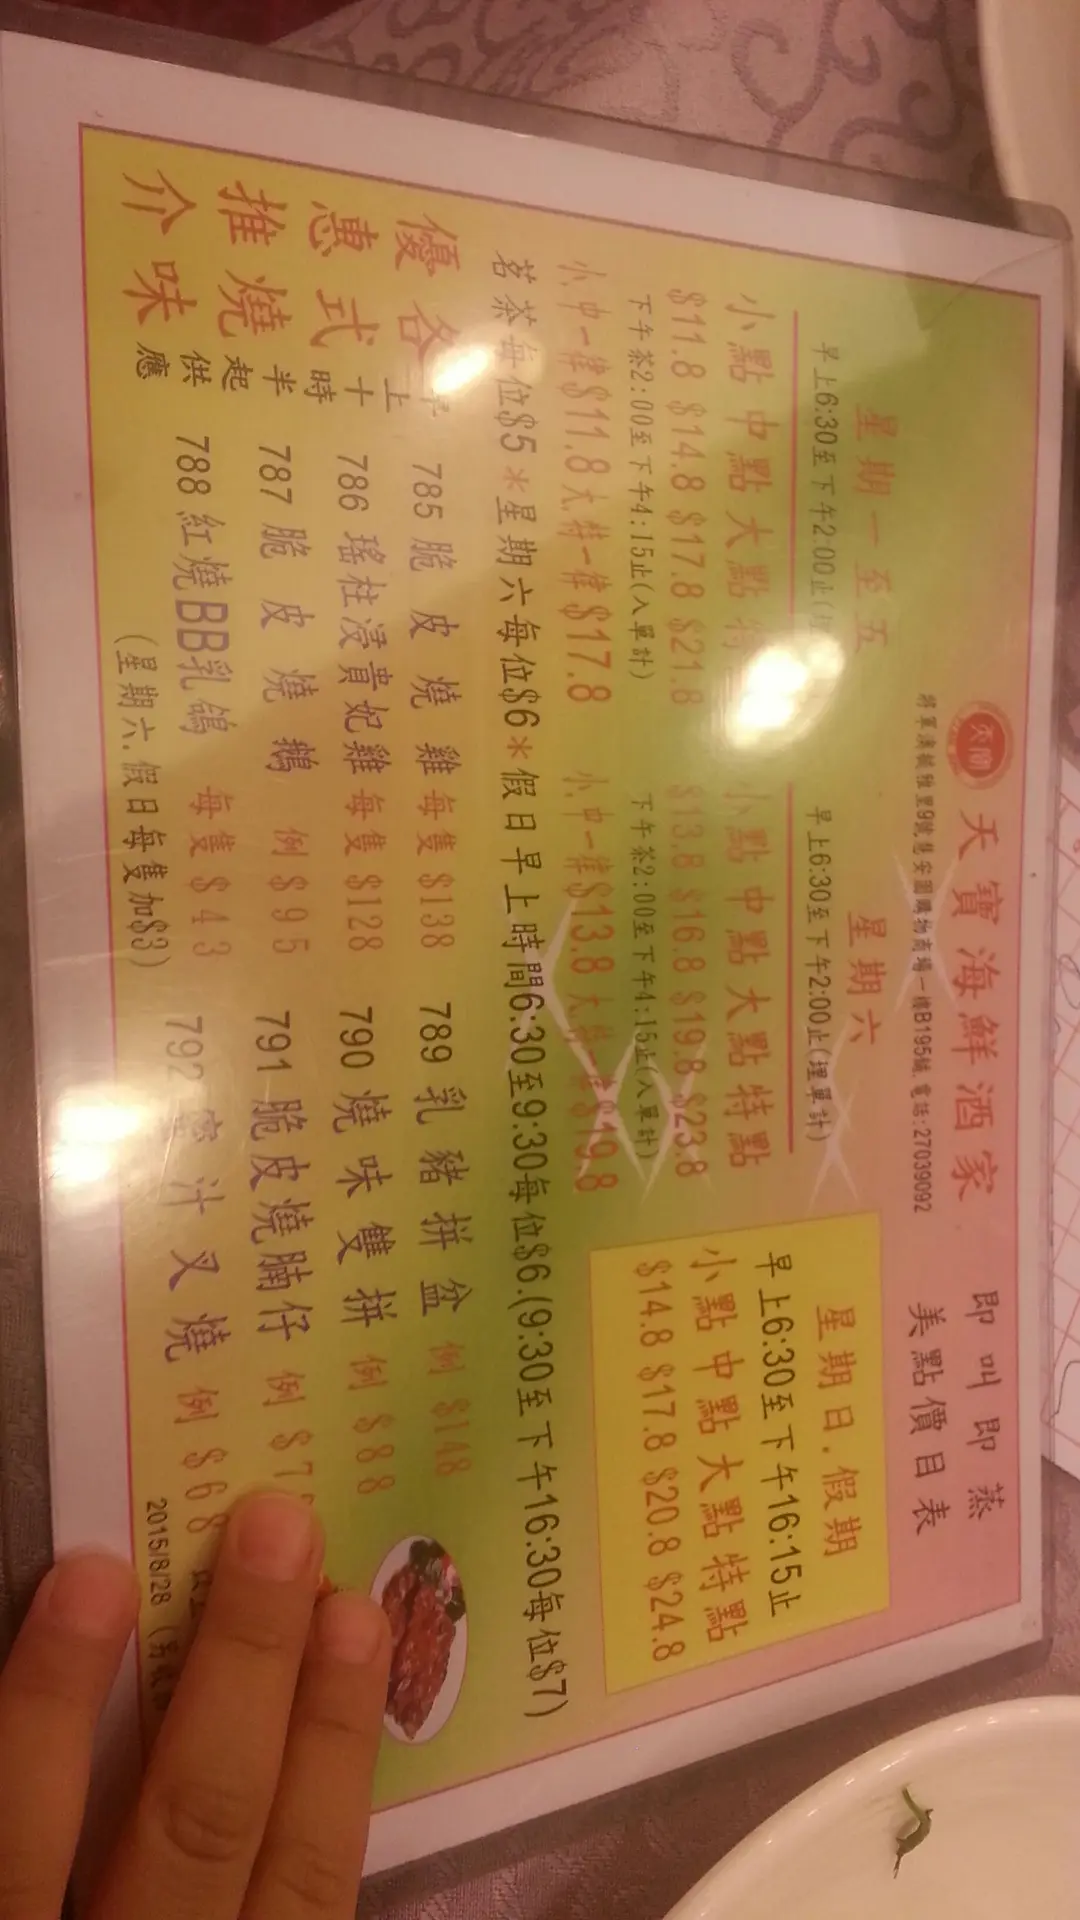 天寶海鮮酒家 即叫即蒸
美點價目表
電話:27039092
星期一至五
早上6:30至下午2:00止
小點 中點 大點
$11.8 $14.8 $17.8 $21.8
下午茶2:00至下午4:15止(入單計)
小.中一律$11.8 大.特一律$17.8
星期六
早上6:30至下午2:00止(埋單計)
小點 中點 大點 特點
$13.8 $16.8 $19.8 $23.8
下午茶2:00至下午4:15止(入單計)
小.中一律$13.8 $19.8
星期日.假期
早上6:30至下午16:15止
小點 中點 大點 特點
$14.8 $17.8 $20.8 $24.8
茗茶每位$5*星期六每位$6*假日早上時間6:30至9:30每位$6.(9:30至下午16:30每位$7)
優惠推介
各式燒味
早上十時半起供應
785 脆皮燒雞 每隻$138
786 瑤柱浸貴妃雞 每隻$128
787 脆皮燒鵝 例$95
788 紅燒BB乳鴿 每隻$43
(星期六.假日每隻加$3)
789 乳豬拼盆 例$148
790 燒味雙拼 例$88
791 脆皮燒腩仔 例
792 蜜汁叉燒 例$68
2015/8/28